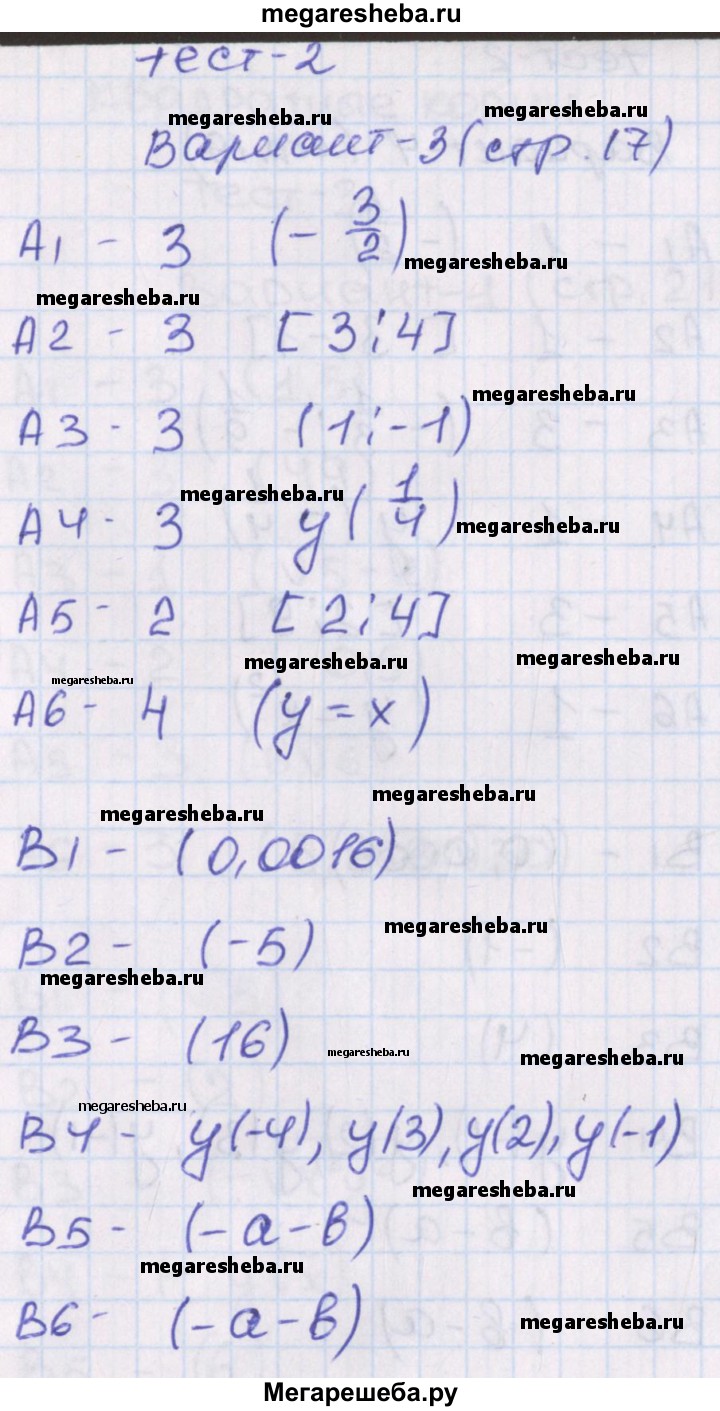 megaresheba.ru
тест-2
megaresheba.ru
megaresheba.ru
Вариант-3 (стр. 17)
А1 - 3 (- 3/2)
megaresheba.ru
megaresheba.ru
А2 - 3 [3;4]
megaresheba.ru
А3 - 3 (1;-1)
megaresheba.ru
А4 - 3 y(1/4)
megaresheba.ru
А5 - 2 [2;4]
megaresheba.ru
megaresheba.ru
megaresheba.ru
А6 - 4 (y=x)
megaresheba.ru
megaresheba.ru
В1 - (0,0016)
megaresheba.ru
В2 - (-5)
megaresheba.ru
В3 - (16)
megaresheba.ru
megaresheba.ru
megaresheba.ru
В4 - y(-4), y(3), y(2), y(-1)
megaresheba.ru
В5 - (-a-b)
megaresheba.ru
В6 - (-a-b)
megaresheba.ru
Мегарешеба.ру